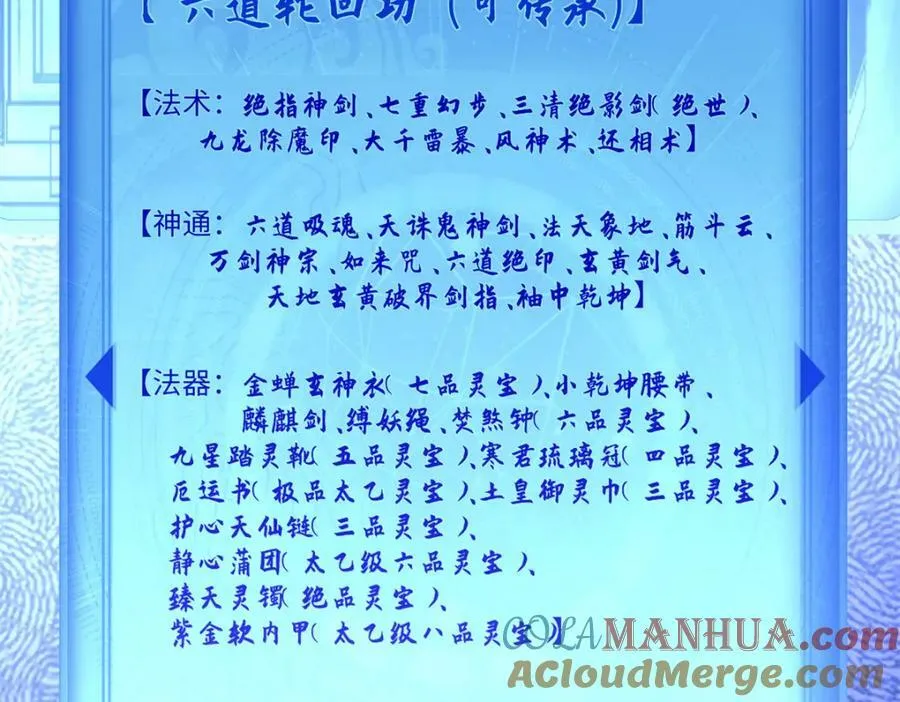 【六道轮回功(可传承)】
【法术：绝指神剑、七重幻步、三清绝影剑(绝世)、
九龙除魔印、大千雷暴、风神术、还相术】
【神通：六道吸魂、天诛鬼神剑、法天象地、筋斗云、
万剑神宗、如来咒、六道绝印、玄黄剑气、
天地玄黄破界剑指、袖中乾坤】
【法器：金蝉玄神衣(七品灵宝)、小乾坤腰带、
麟麒剑、缚妖绳、焚煞钟(六品灵宝)、
九星踏灵靴(五品灵宝)、寒君琉璃冠(四品灵宝)、
厄运书(极品太乙灵宝)、土皇御灵巾(三品灵宝)、
护心天仙链(三品灵宝)、
静心蒲团(太乙级六品灵宝)、
臻天灵镯(绝品灵宝)、
紫金软内甲(太乙级八品灵宝)】
COLAMANHUA.com
ACloudMerge.com